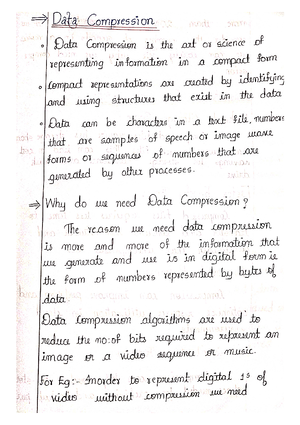 ⇒ Data Compression
• Data Compression is the art or science of
representing information in a compact form
• Compact representations are created by identifying
and using structures that exist in the data
• Data can be characters in a text file, numbers
that are samples of speech or image wave
forms or sequences of numbers that are
generated by other processes.
⇒ Why do we need Data Compression?
The reason we need data compression
is more and more of the information that
we generate and use is in digital form is
the form of numbers represented by bytes of
data.
Data Compression algorithms are used to
reduce the no:of bits required to represent an
image or a video sequence or music.
For Eg:- Inorder to represent digital 1s of
video without compression we need